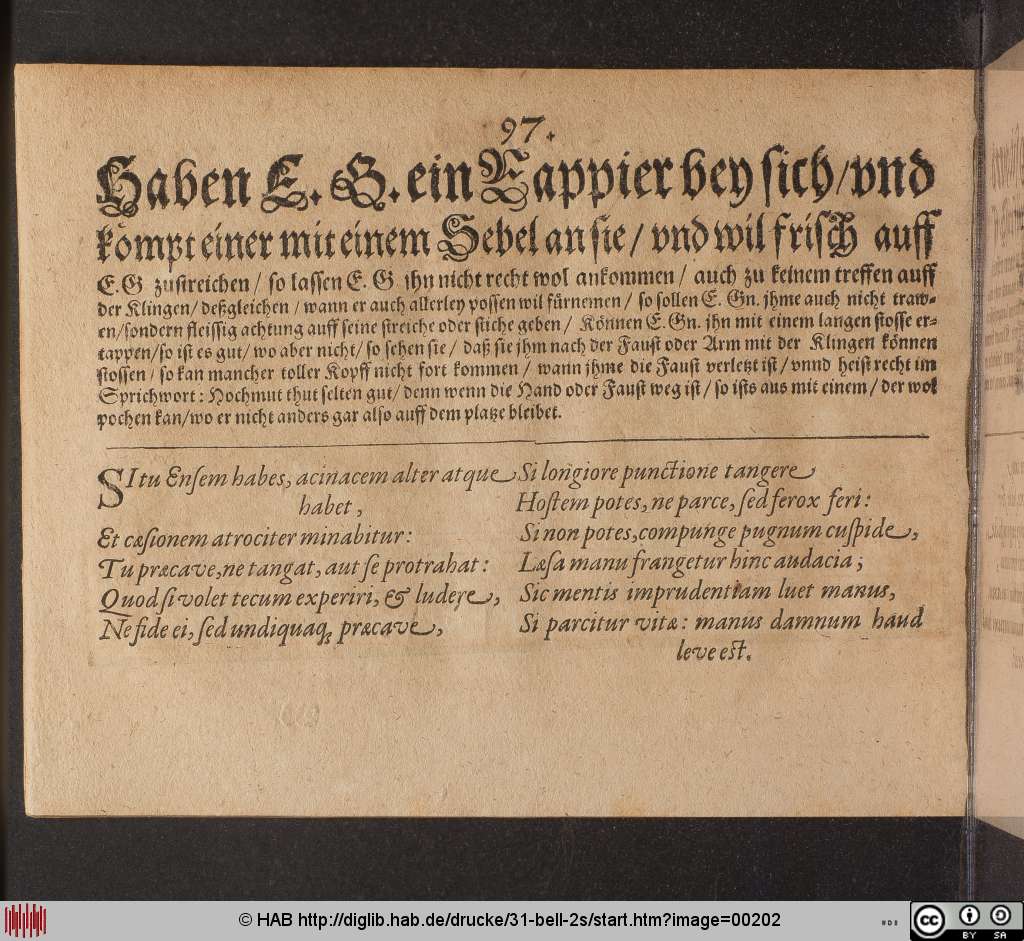 97.
Haben E. G. ein Rappier bey sich/vnd
kömpt einer mit einem Sebel an sie/ vnd wil frisch auff
E.G zustreichen/ so lassen E. G ihn nicht recht wol ankommen/ auch zu keinem treffen auff
der Klingen/ deßgleichen/ wann er auch allerley possen wil fürnemen/ so sollen E. Gn. jhme auch nicht traw-
en/sondern fleissig achtung auff seine streiche oder stiche geben/ Können E.Gn. jhn mit einem langen stosse er-
tappen/so ist es gut/ wo aber nicht/ so sehen sie/ daß sie jhm nach der Faust oder Arm mit der Klingen können
stossen/ so kan mancher toller Kopff nicht fort kommen/ wann jhme die Faust verletzt ist/ vnnd heist recht im
Sprichwort: Hochmut thut selten gut/ denn wenn die Hand oder Faust weg ist/ so ists aus mit einem/ der wol
pochen kan/wo er nicht anders gar also auff dem platze bleibet.
SI tu Ensem habes, acinacem alter atque
habet,
Et cæsionem atrociter minabitur:
Tu præcave,ne tangat, aut se protrahat:
Quod si volet tecum experiri, & ludere,
Ne fide ei, sed undiquaq; præcave,
Si longiore punctione tangere
Hostem potes, ne parce, sed ferox feri:
Si non potes,compunge pugnum cuspide,
Læsa manu frangetur hinc audacia;
Sic mentis imprudentiam luet manus,
Si parcitur vitæ: manus damnum haud
leve est.
© HAB http://diglib.hab.de/drucke/31-bell-2s/start.htm?image=00202
cc
BY SA